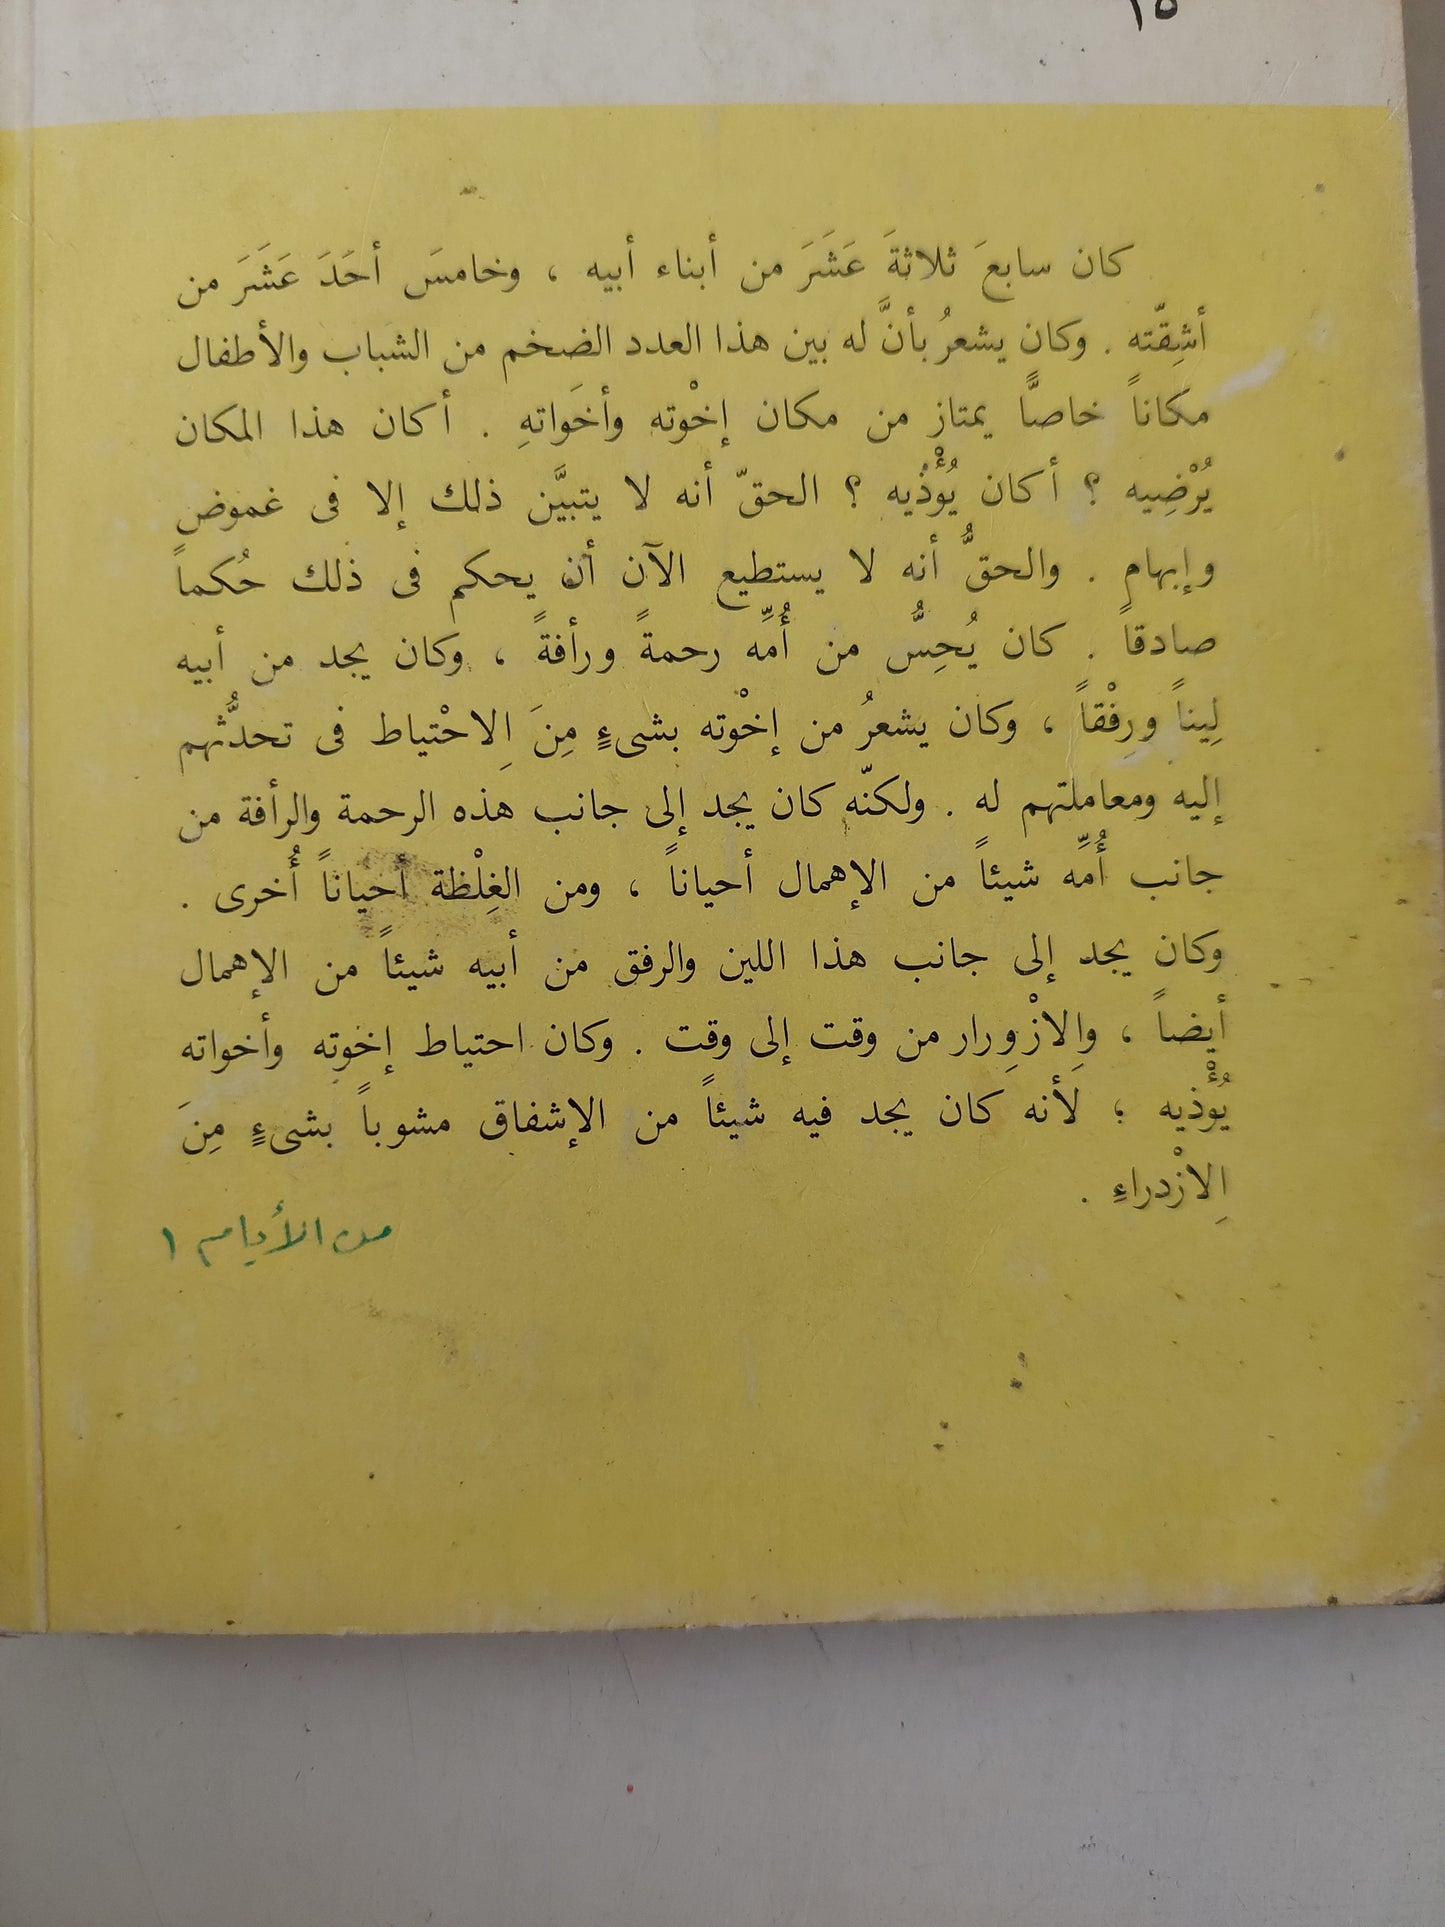 ١٥
كان سابعَ ثلاثةَ عَشَرَ من أبناء أبيه ، وخامسَ أحَدَ عَشَرَ من
أشِقّته . وكان يشعرُ بأنَّ له بين هذا العدد الضخم من الشباب والأطفال
مكاناً خاصًّا يمتاز من مكان إخْوته وأخَواتهِ . أكان هذا المكان
يُرْضِيه ؟ أكان يُؤْذُيه ؟ الحقّ أنه لا يتبيَّن ذلك إلا فى غموض
وإبهام . والحقُّ أنه لا يستطيع الآن أن يحكم فى ذلك حُكماً
صادقاً . كان يُحِسُّ من أُمِّه رحمةً ورأفةً ، وكان يجد من أبيه
لِيناً ورِفْقاً ، وكان يشعرُ من إخْوته بشىءٍ مِنَ اِلاحْتياط فى تحدُّثهم
إليه ومعاملتهم له . ولكنّه كان يجد إلى جانب هذه الرحمة والرأفة من
جانب أُمِّه شيئاً من الإهمال أحياناً ، ومن الغِلْظة أحياناً أُخرى .
وكان يجد إلى جانب هذا اللين والرفق من أبيه شيئاً من الإهمال
أيضاً ، واِلازْوِرار من وقت إلى وقت . وكان احتياط إخوته وأخواته
يُؤْذيه ؛ لأنه كان يجد فيه شيئاً من الإشفاق مشوباً بشىءٍ مِنَ
اِلازْدراءِ .
من الأيام ١